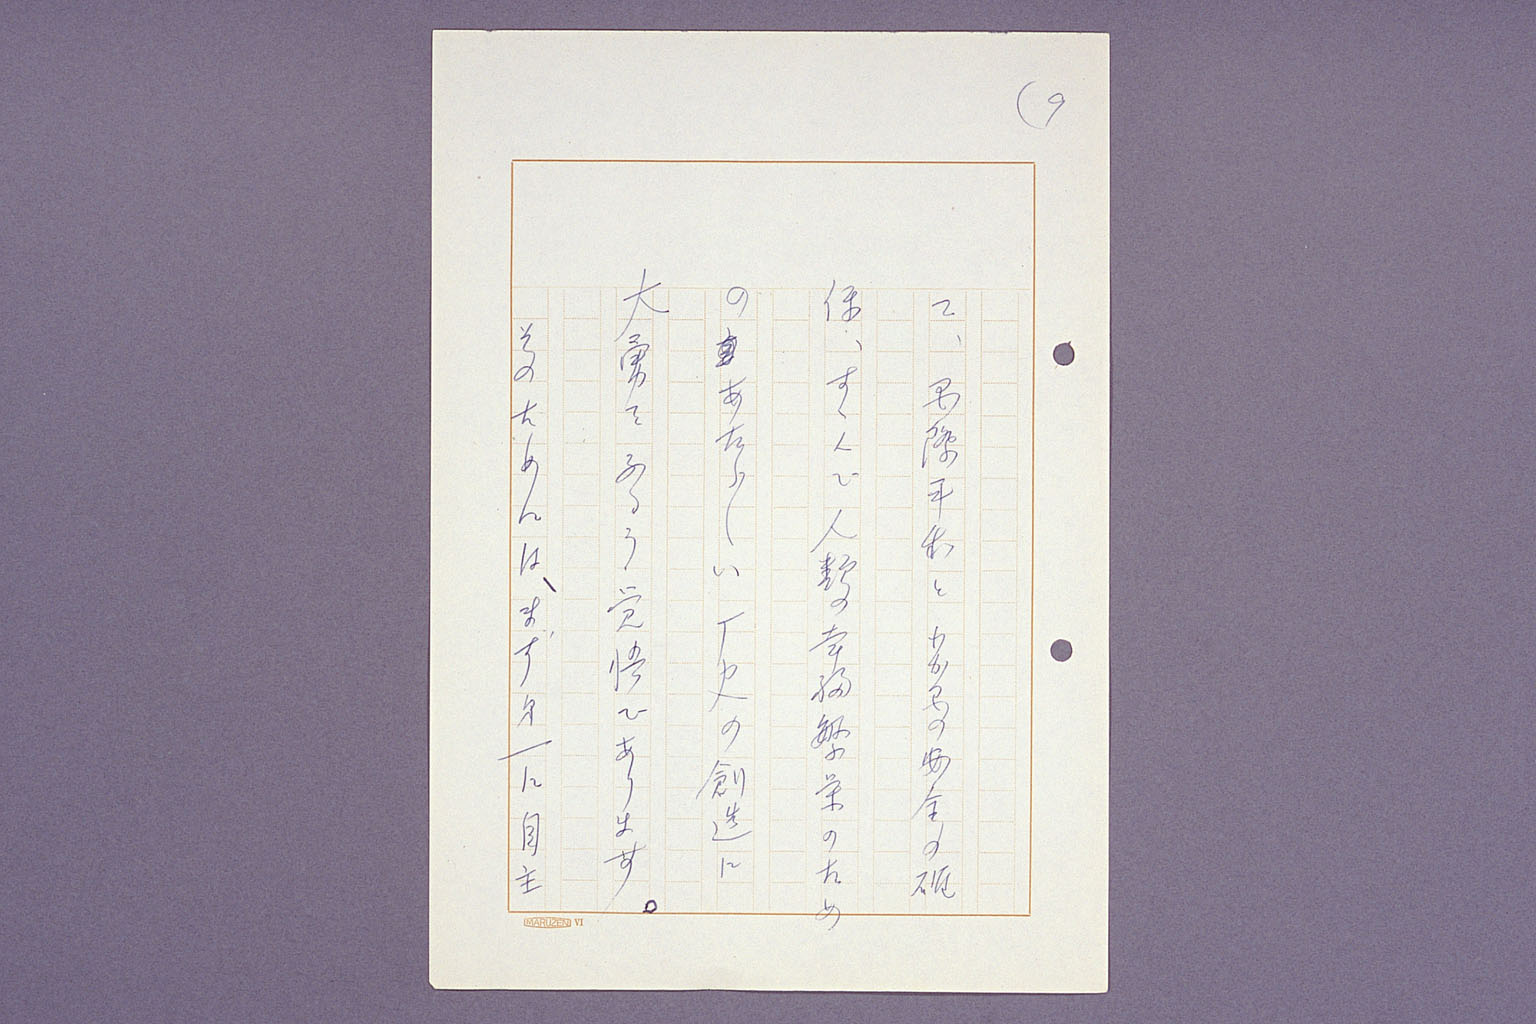 (9
て、国際平和とわが国の安全の確
保、すゝんで人類の幸福繁栄のため
のあたらしい歴史の創造に
大勇をふるう覚悟であります。
そのためには、まず第一に自主
MARUZEN VI